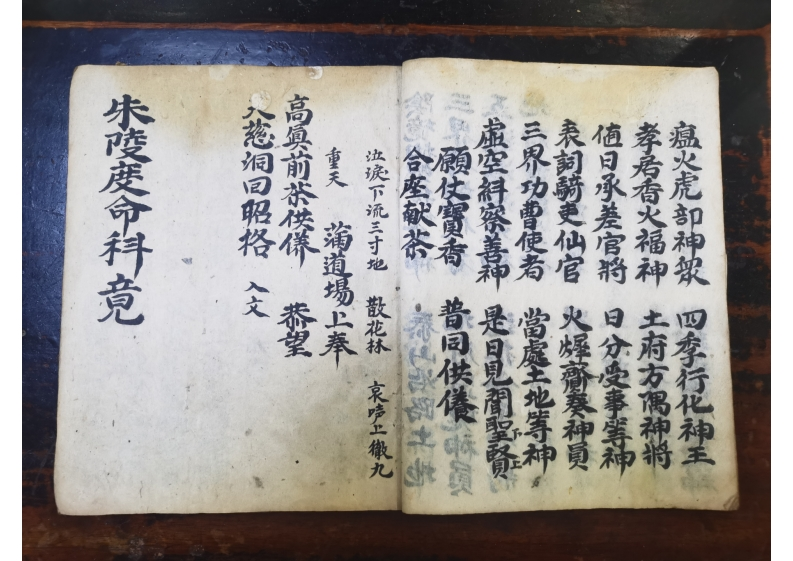 瘟火虎部神眾　四季行化神王
孝居香火福神　土府方隅神將
值日承差官將　日分受事等神
表詞騎吏仙官　火墀齋葵神員
三界功曹使者　當處土地等神
虛空糾察善神　是日見聞聖賢 下上
願仗寶香　普同供養
合座献茶
泣淚下流三寸地　散花林　哀声上徹九
重天　滿道場上奉
高真前茶供儀　恭望
大慈洞回昭格　入文
朱陵度命科竟